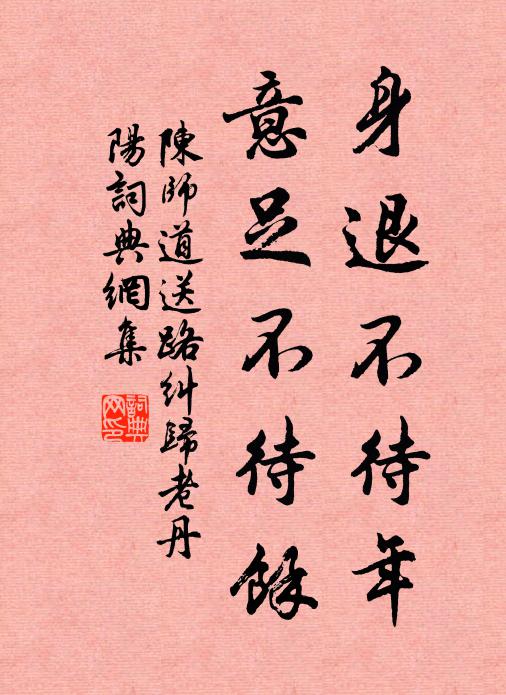 身退不待年
意足不待餘
陳師道送路糾歸老丹
陽詞典網集
詞典
网印